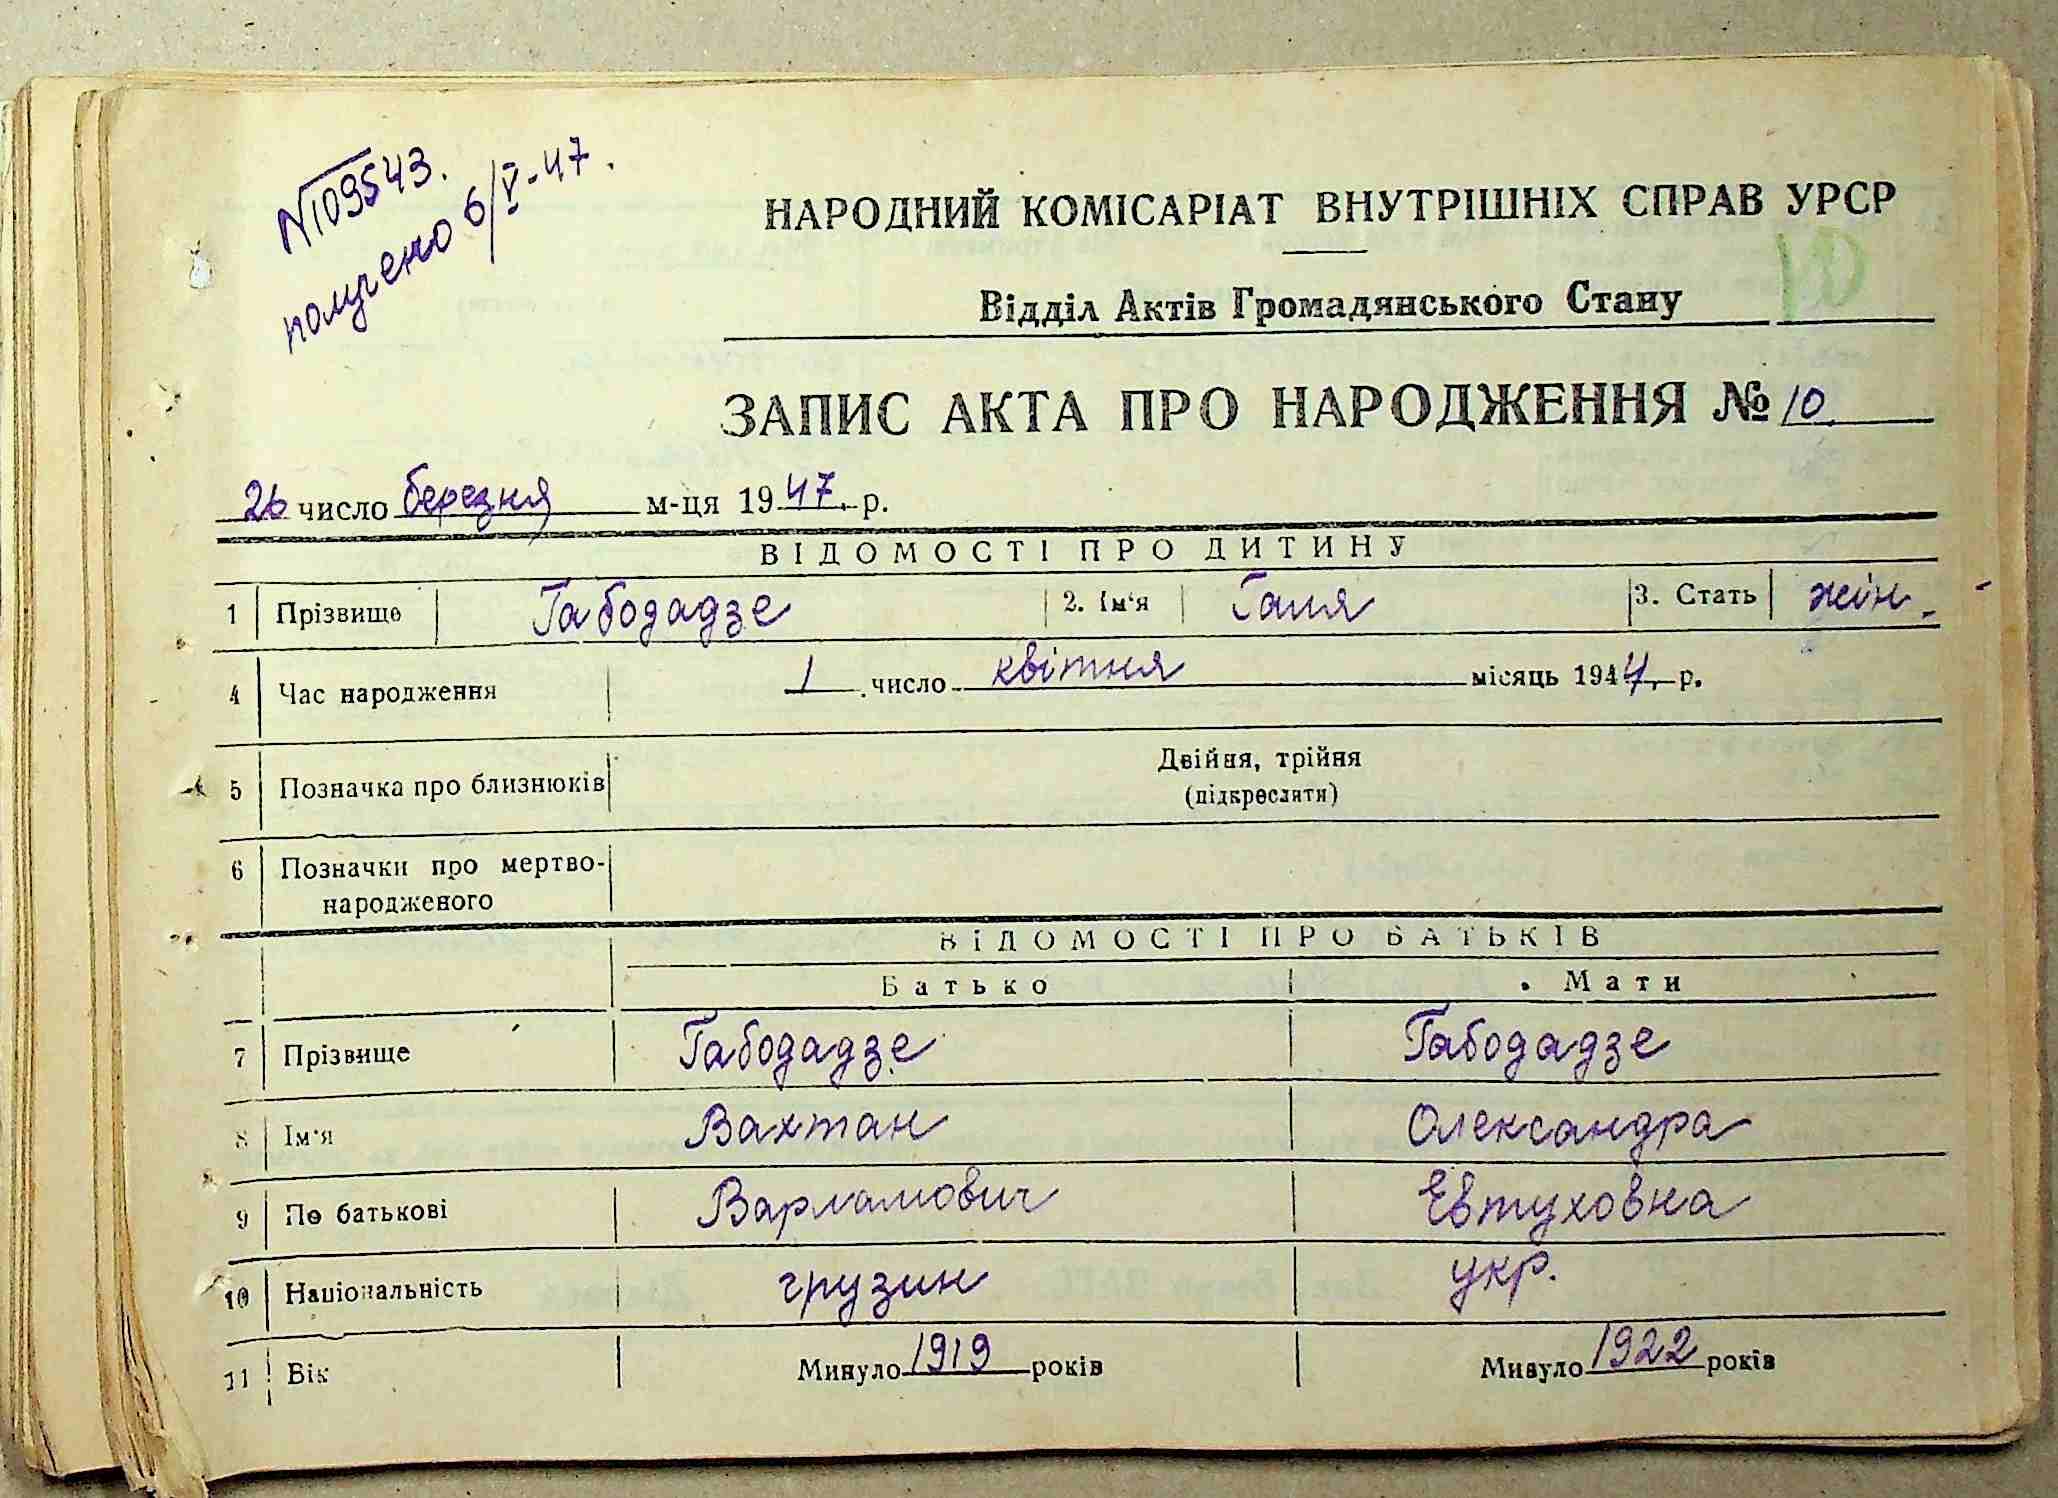 N109543.
получено 6/V-47.
НАРОДНИЙ КОМІСАРІАТ ВНУТРІШНІХ СПРАВ УРСР
Відділ Актів Громадянського Стану
ЗАПИС АКТА ПРО НАРОДЖЕННЯ № 10
26 число березня м-ця 1947. р.
ВІДОМОСТІ ПРО ДИТИНУ
1 Прізвище Габодадзе 2. Ім'я Галя 3. Стать жін.
4 Час народження 1 число квітня місяць 1944. р.
5 Позначка про близнюків Двійня, трійня
(підкреслити)
6 Позначки про мертво-
народженого
ВІДОМОСТІ ПРО БАТЬКІВ
Батько Мати
7 Прізвище Габодадзе Габодадзе
8 Ім'я Вахтан Олександра
9 По батькові Варламович Евтуховна
10 Національність грузин укр.
11 Вік Минуло 1919 років Минуло 1922 років